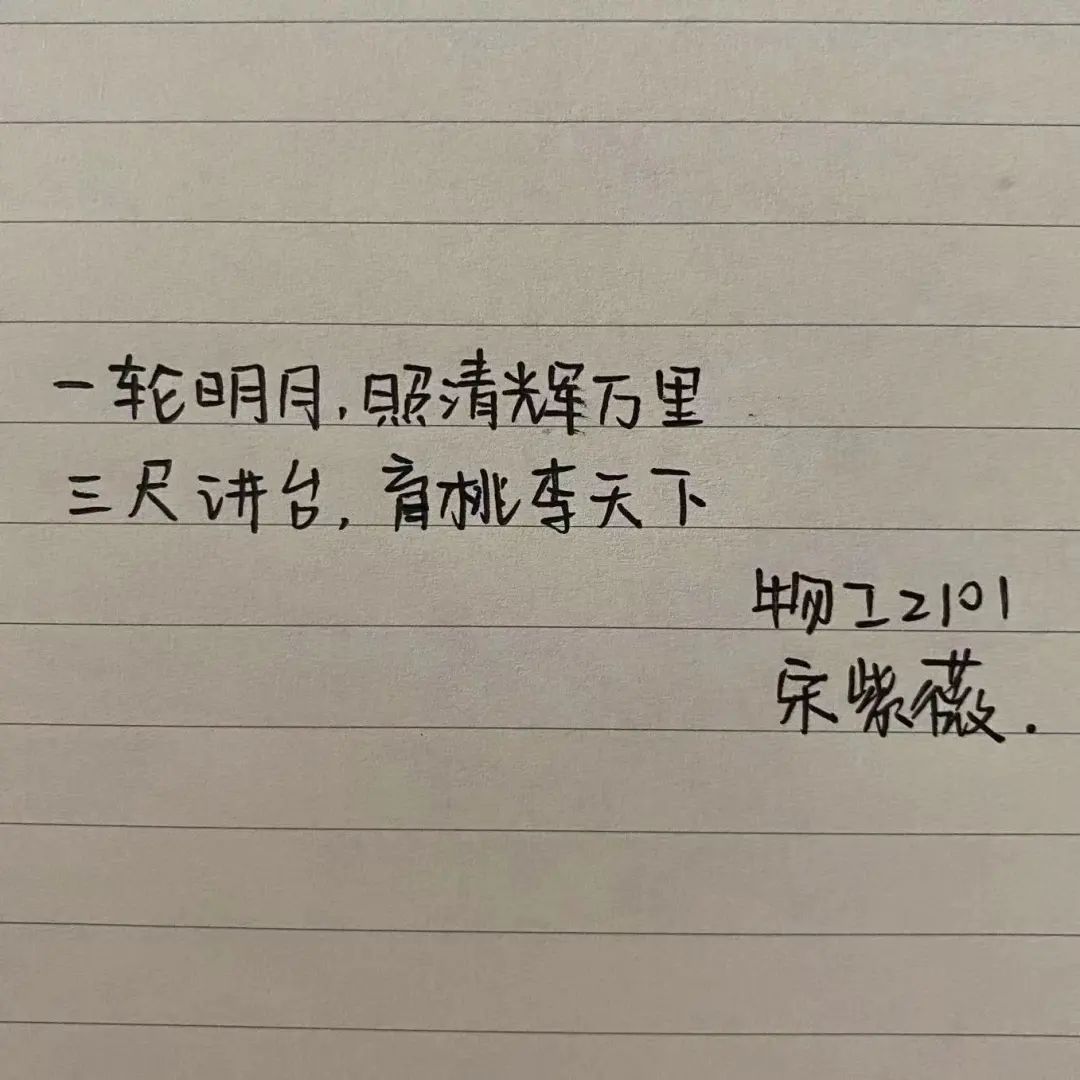 一轮明月,照清辉万里
三尺讲台,育桃李天下
物工2101
宋紫薇.